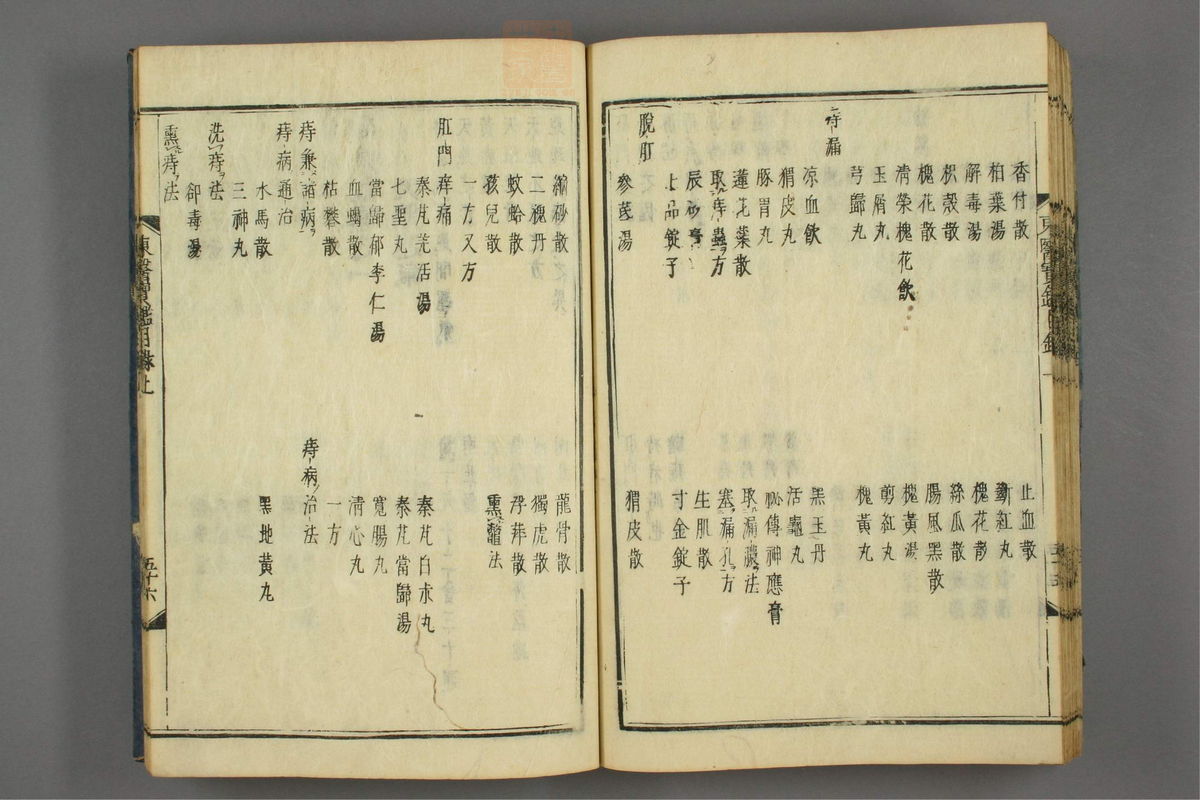 香付散　止血散
柏葉湯　斷紅丸
解毒湯　槐花散
枳殼散　絲瓜散
槐花散　腸風黑散
清榮槐花飲　槐黃湯
玉屑丸　剪紅丸
芎歸丸　槐黃丸
痔漏
涼血飲　黑玉丹
猬皮丸　活龜丸
豚胃丸　祕傳神應膏
蓮花藥散　取漏膿法
取痔蟲方　塞漏孔方
辰砂膏　生肌散
上品錠子　寸金錠子
脫肛
參芪湯　猬皮散
東醫寶鑑目錄上
五十五
縮砂散　龍骨散
二槐丹　獨虎散
蚊蛤散　浮萍散
孩兒散　熏鼈法
一方又方
肛門痒痛
秦芃羌活湯　秦芃白朮丸
七聖丸　秦芃當歸湯
當歸郁李仁湯　寬腸丸
血竭散　清心丸
枯礬散　一方
痔兼諸病　痔病治法
痔病通治
水馬散　黑地黃丸
三神丸
洗痔法
却毒湯
熏痔法
東醫寶鑑目錄上
五十六